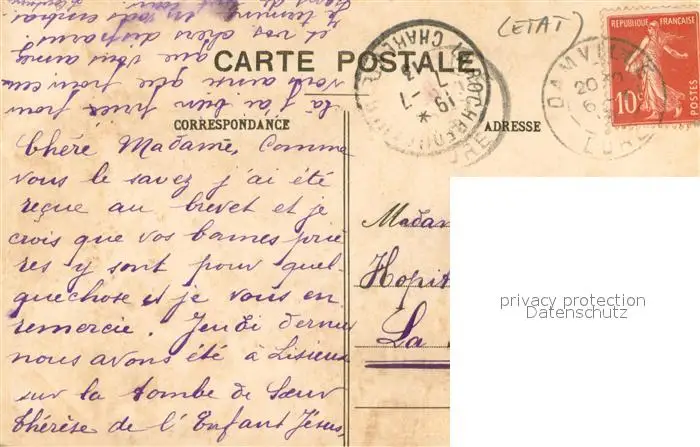 (ETAT)
CARTE POSTALE
CORRESPONDANCE
ADRESSE
REPUBLIQUE FRANÇAISE
POSTES
10c
DAMVILLE
EURE
Chéré Madame, Comme
vous le savez j'ai été
reçue au brevet et je
crois que vos bonnes priè
res y sont pour quel-
quechose et je vous en
remercie. Jeudi dernier
nous avons été à Lisieux
sur la tombe de Sœur
Thérèse de l'Enfant Jésus,
là j'ai bien prié pour
vous ainsi que pour ceux
que vous aimez
et vos chers disparus
Je termine en vous embras
Madam
Hopit
La
privacy protection
Datenschutz